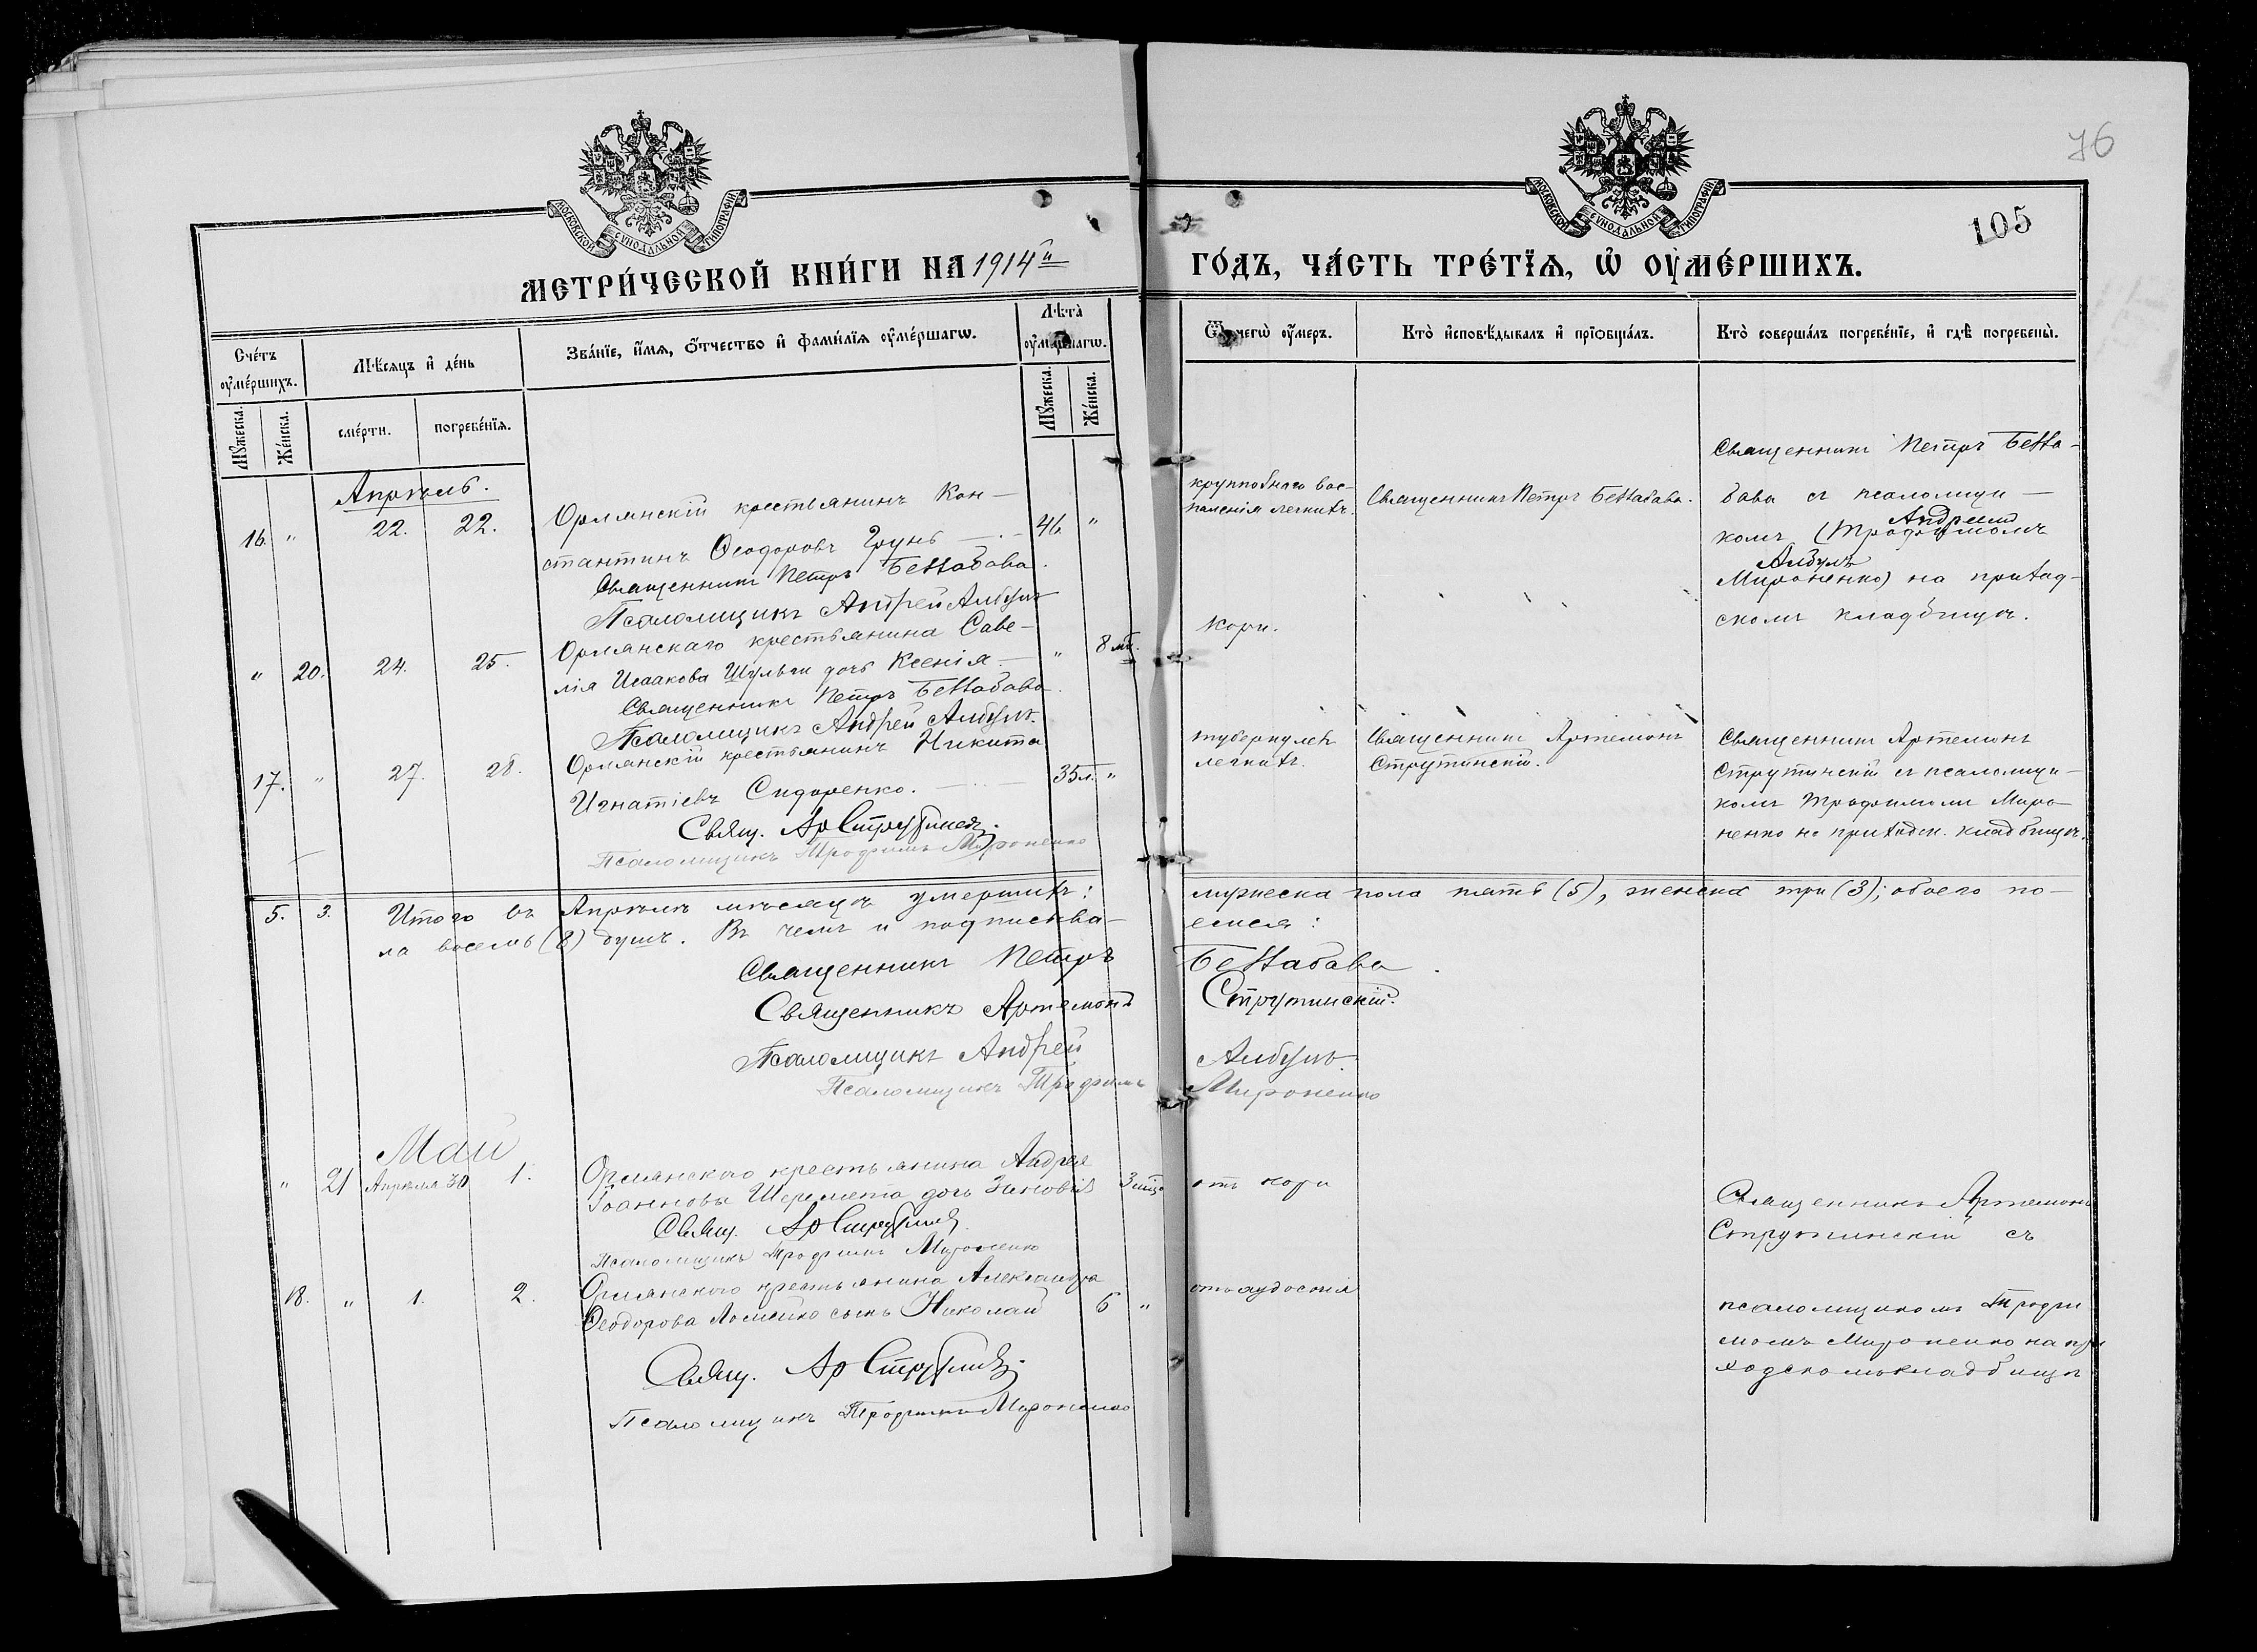 76
105
МОСКОВСКОЙ СѴНОДАЛЬНОЙ ТИПОГРАФІИ
МОСКОВСКОЙ СѴНОДАЛЬНОЙ ТИПОГРАФІИ
МЕТРИ́ЧЕСКОЙ КНИ́ГИ НА 1914й
ГО́ДЪ, ЧА́СТЬ ТРЕ́ТЇѦ, Ѽ ОУМЕ́РШИХЪ.
Сче́тъ оуме́ршихъ.
Мѣ́сѧцъ и де́нь
Зва́нїе, и́мѧ, о́тчество и фами́лїѧ оуме́ршагѡ.
Лѣта̀ оуме́ршагѡ.
Ѿ чегѡ̀ оу́меръ.
Кто̀ исповѣ́дывалъ и прїѡбща́лъ.
Кто̀ соверша́лъ погребе́нїе, и гдѣ̀ погребены̀.
Мꙋ́жеска.
Же́нска.
сме́рти.
погребе́нїѧ.
Мꙋ́жеска.
Же́нска.
Апрѣль.
16. " 22. 22. Орлянскій крестьянинъ Кон-
стантинъ Ѳеодоровъ Грунь 46. "
Священникъ Петръ Беккабава.
Псаломщикъ Андрей Албулъ
крупознаго вос-
паленія легкихъ.
Священникъ Петръ Беккабава.
Священникъ Петръ Бекка-
бава съ псаломщи-
Андреемъ
комъ (Трофимомъ
Албулъ
Мироненко) на приход-
скомъ кладбищѣ.
" 20. 24. 25. Орлянскаго крестьянина Саве-
лія Исаакова Шульги дочь Ксенія. " 8 мѣ.
Священникъ Петръ Беккабава.
Псаломщикъ Андрей Албулъ.
Кори.
17. " 27. 28. Орлянскій крестьянинъ Никита
Игнатіевъ Сидоренко. 35л. "
Свящ. Ар Струтинск.
Псаломщикъ Трофимъ Мироненко
туберкулезъ
легкихъ.
Священникъ Артемонъ
Струтинскій.
Священникъ Артемонъ
Струтинскій съ псаломщи-
комъ Трофимомъ Миро-
ненко на приходск. кладбищѣ.
5. 3. Итого въ Апрѣлѣ мѣсяцѣ умершихъ: мужеска пола пять (5), женска три (3); обоего по-
ла восемь (8) душъ. Въ чемъ и подписква- емся:
Священникъ Петръ Беккабава.
Священникъ Артемонъ Струтинскій.
Псаломщикъ Андрей Албулъ.
Псаломщикъ Трофимъ Мироненко
Май
" 21 Апрѣля 30 1. Орлянскаго крестьянина Андрея
Іоаннова Шеремета дочь Зиновія
Свящ. Ар Струтинск.
Псаломщикъ Трофимъ Мироненко
отъ кори
Священникъ Артемонъ
Струтинскій съ
18. " 1. 2. Орлянского крестьянина Александра
Ѳеодорова Ломейко сынъ Николай 6 "
Свящ. Ар Струтинск.
Псаломщикъ Трофимъ Мироненко
псаломщикомъ Трофи
момъ Мироненко на при
ходскомъ кладбищѣ